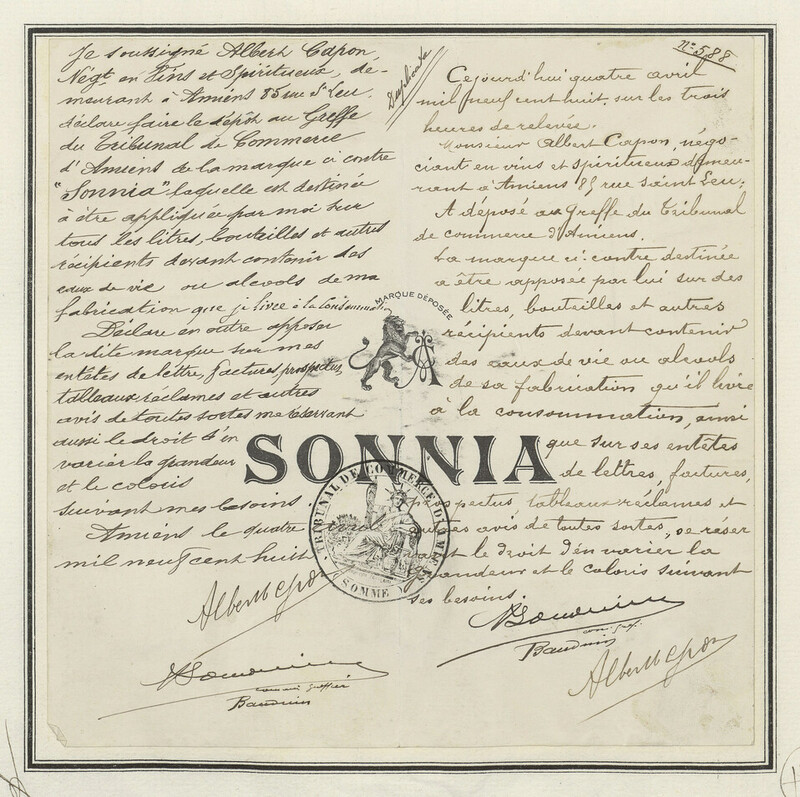 Je soussigné Albert Capon
Négt. en Vins et Spiritueux, de-
meurant à Amiens 85 rue St Leu.
déclare faire le dépôt au Greffe
du Tribunal de Commerce
d'Amiens de la marque ci contre
"Sonnia" laquelle est destinée
à être appliquée par moi sur
tous les litres, bouteilles et autres
récipients devant contenir des
eaux de vie ou alcools de ma
fabrication que je livre à la Consommation
Déclare en outre apposer
la dite marque sur mes
entêtes de lettre, factures, prospectus,
tableaux réclames et autres
avis de toutes sortes me réservant
aussi le droit d'en
varier la grandeur
et le coloris
suivant mes besoins.
Amiens le quatre avril
mil neuf cent huit
Albert Capon
Baudouin
commis greffier
Duplicata
No 588
Cejourd'hui quatre avril
mil neuf cent huit, sur les trois
heures de relevée.
Monsieur Albert Capon, négo-
ciant en vins et spiritueux demeu-
rant à Amiens 85 rue Saint Leu;
A déposé au greffe du Tribunal
de commerce d'Amiens.
La marque ci contre destinée
a être apposée par lui sur des
litres, bouteilles et autres
récipients devant contenir
des eaux de vie ou alcools
de sa fabrication qu'il livre
à la consommation, ainsi
que sur ses entêtes
de lettres, factures,
prospectus, tableaux réclames et
autres avis de toutes sortes, se réser
vant le droit d'en varier la
grandeur et le coloris suivant
ses besoins.
Albert Capon
MARQUE DÉPOSÉE
SONNIA
TRIBUNAL DE COMMERCE D'AMIENS
(SOMME)